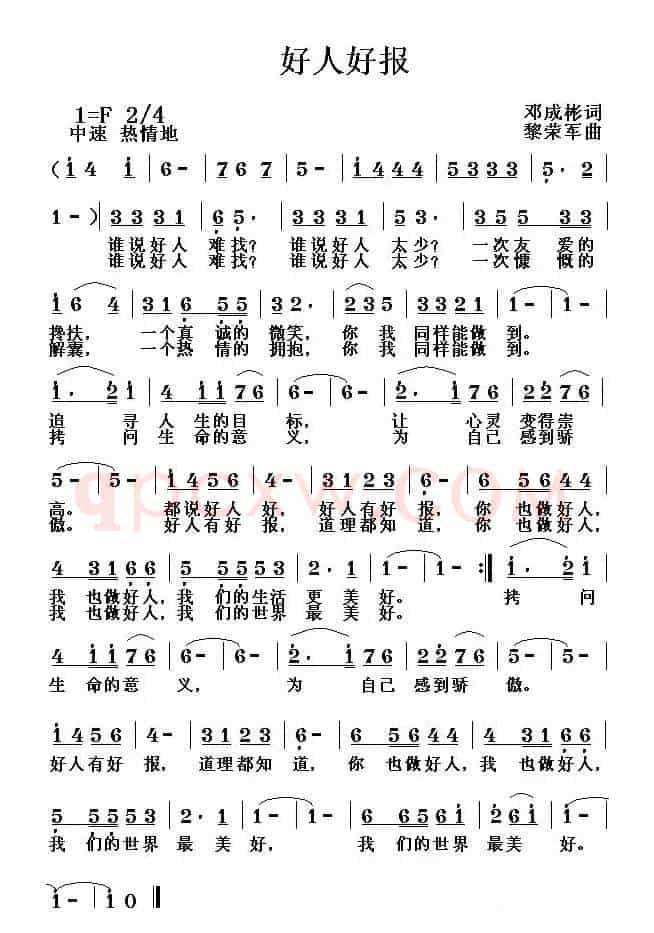 好人好报
1=F 2/4
邓成彬词
中速 热情地
黎荣军曲
( i 4 i | 6 - | 7 6 7 | 5 - | 3 1 2 3 | 4 4 | 5 3 3 3 | 5 · 2 |
1 - ) | 3 3 3 1 | 6 5 · | 3 3 3 1 | 2 2 · | 5 3 · | 5 5 3 3 |
谁说好人 难找？ 谁说好人 太少？ 一次友 爱的
谁说好人 难找？ 谁说好人 太少？ 一次慷 慨的
i 6 4 | 3 1 6 5 5 | 3 2 · | 2 3 5 | 3 3 2 1 | 1 - | 1 - |
搀扶， 一个真 诚的 微笑， 你 我 同样能做 到。
解囊， 一个热 情的 拥抱， 你 我 同样能做 到。
i · 2 i | 4 i i 7 6 | 6 - | 6 - | 2 · i 7 6 | 4 2 2 7 6 |
追 寻 人 生的目 标， 让 心灵 变得崇
拷 问 生 命的意 义， 为 自己 感到骄
5 - | 5 - | i 4 5 6 | 4 - | 3 1 2 3 | 2 - | 6 5 6 4 4 |
高。 都说好人 好， 好人有好 报， 你 也做好人，
傲。 好人有好 报， 道理都知 道， 你 也做好人，
4 3 1 6 6 | 5 5 5 5 3 | 2 · 1 | 1 - | 1 - :| i · 2 i |
我 也做好人， 我 们的生活 更 美 好。 拷 问
我 也做好人， 我 们的世界 最 美 好。
4 i i 7 6 | 6 - | 6 - | 2 · i 7 6 | 4 2 2 7 6 | 5 - | 5 - |
生 命的意 义， 为 自己 感到骄 傲。
i 4 5 6 | 4 - | 3 1 2 3 | 2 - | 6 5 6 4 4 | 4 3 1 6 6 |
好人有好 报， 道理都知 道， 你 也做好人， 我 也做好人，
5 5 5 5 3 | 2 · 1 | 1 - | 1 - | 6 6 6 5 6 i | 2 6 i | i - |
我 们的世界 最 美 好， 我 们的世界 最美 好。
i - | i 0 ‖
qpcxw.COM